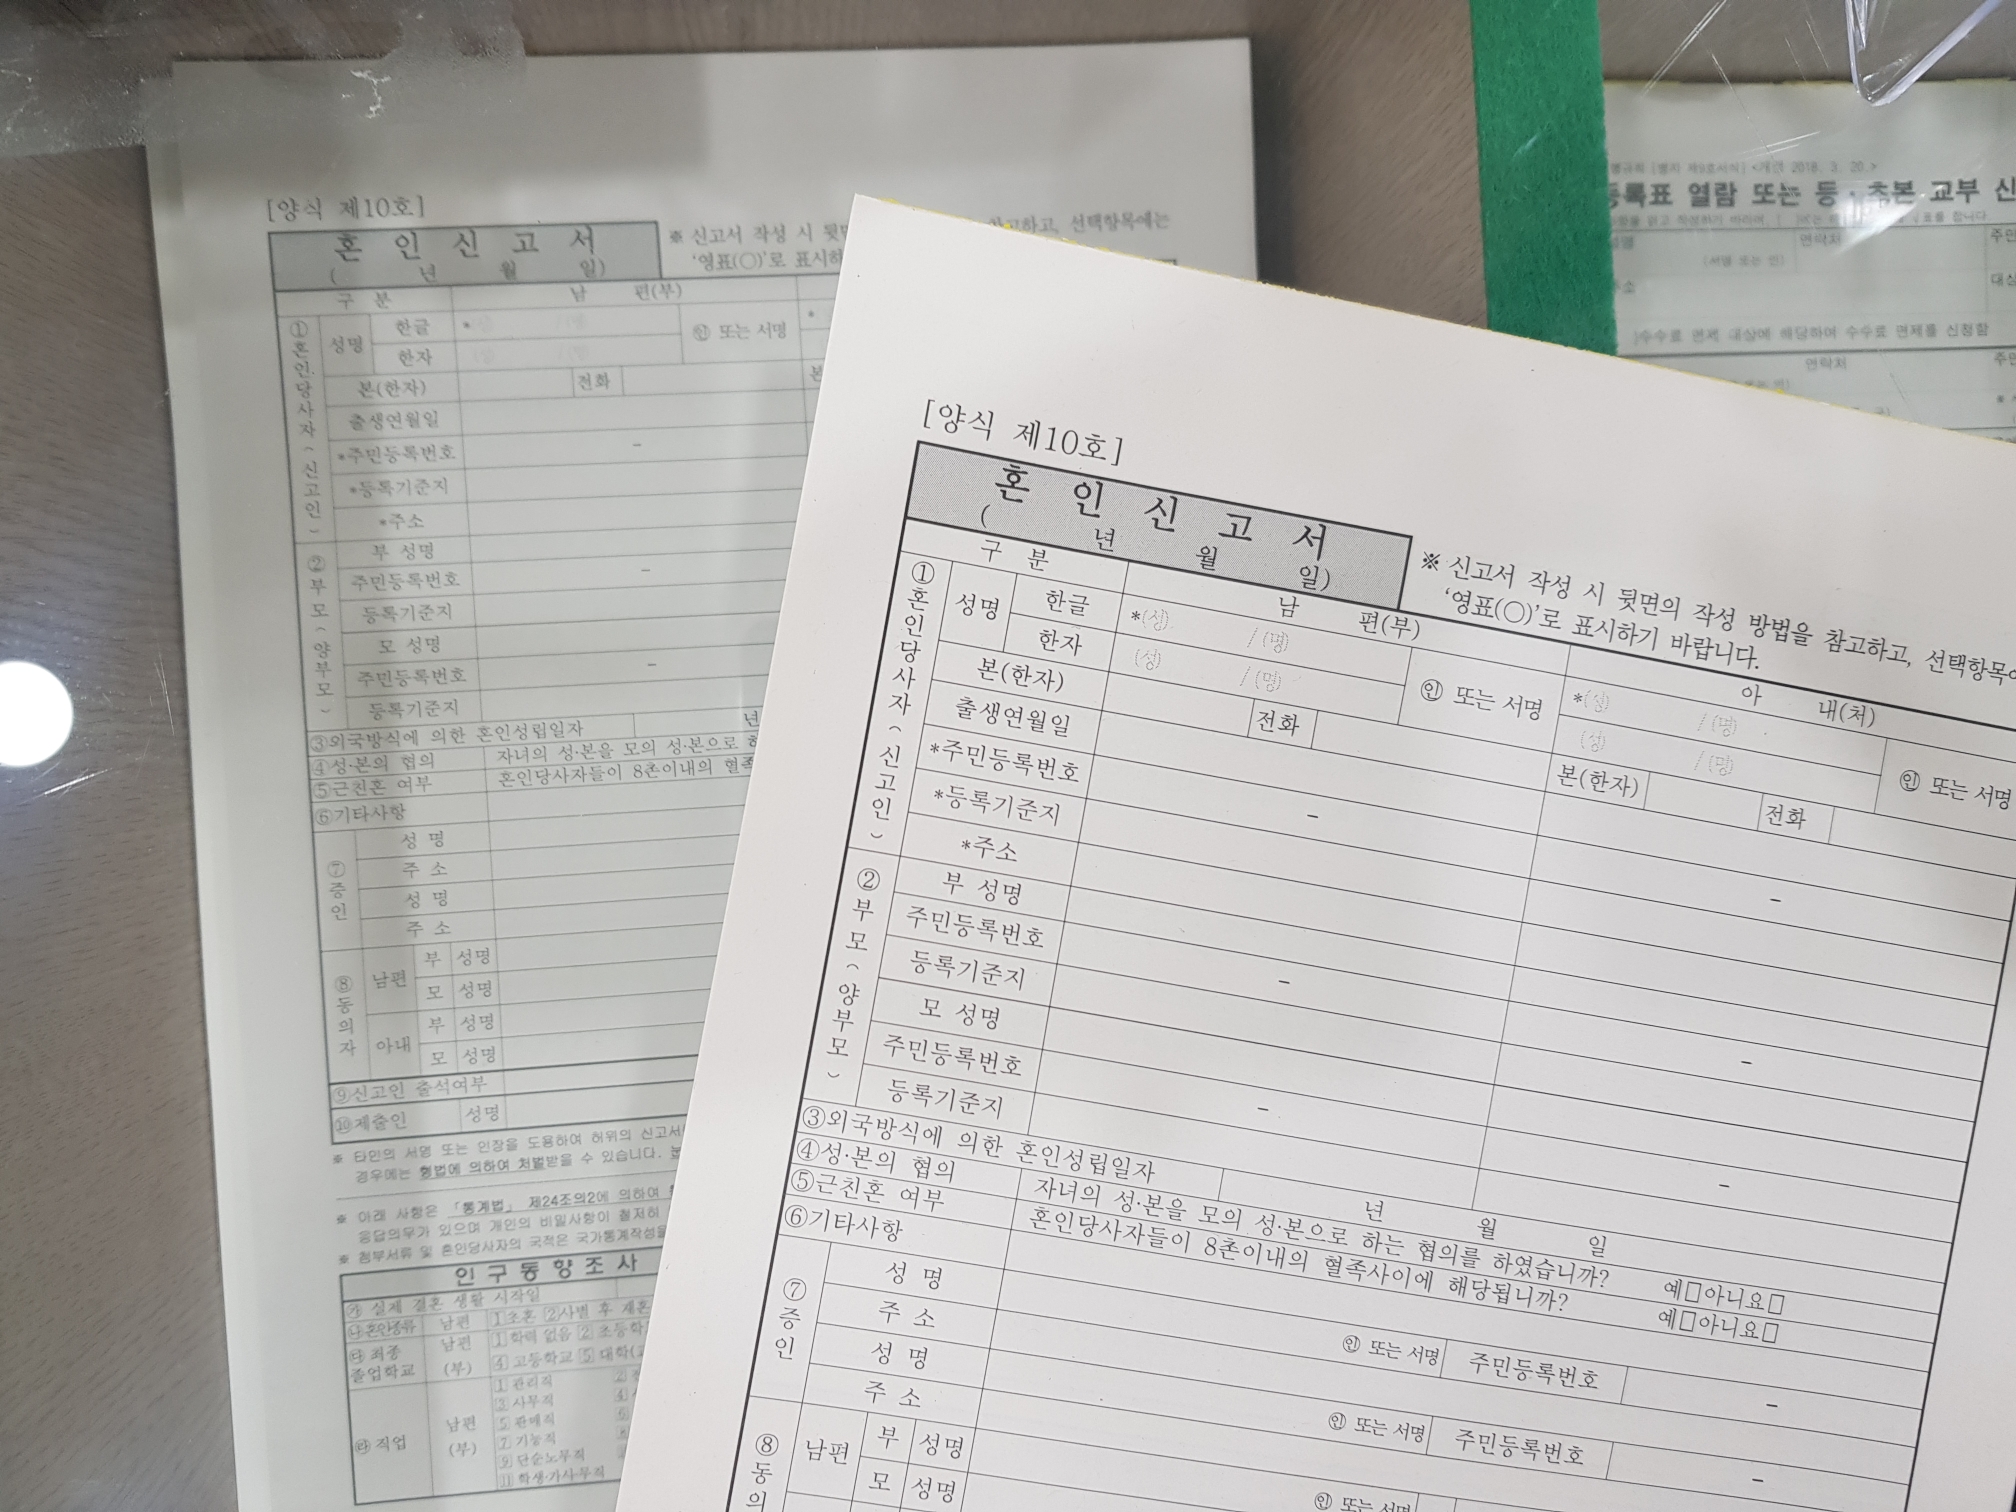 [양식 제10호]
혼 인 신 고 서
( 년 월 일)
※ 신고서 작성 시 뒷면
참고하고, 선택항목에는
'영표(○)'로 표시하
구 분
남 편(부)
①혼인당사자(신고인)
성명
한글
*
㊞ 또는 서명
*
한자
본(한자)
전화
본
출생연월일
*주민등록번호
-
*등록기준지
*주소
②부모(양부모)
부 성명
주민등록번호
-
등록기준지
모 성명
주민등록번호
-
등록기준지
③외국방식에 의한 혼인성립일자
년
④성·본의 협의
자녀의 성·본을 모의 성·본으로 하
⑤근친혼 여부
혼인당사자들이 8촌이내의 혈족
⑥기타사항
⑦증인
성 명
주 소
성 명
주 소
⑧동의자
남편
부 성명
모 성명
아내
부 성명
모 성명
⑨신고인 출석여부
⑩제출인
성명
※ 타인의 서명 또는 인장을 도용하여 허위의 신고서
경우에는 형법에 의하여 처벌받을 수 있습니다.
※ 아래 사항은 「통계법」 제24조의2에 의하여
응답의무가 있으며 개인의 비밀사항이 철저히
※ 첨부서류 및 혼인당사자의 국적은 국가통계작성을
인 구 동 향 조 사
㉮ 실제 결혼 생활 시작일
㉯ 혼인종류
남편
1 초혼 2 사별 후 재혼
㉰ 최종 졸업학교
남편
(부)
1 학력 없음 2 초등학
4 고등학교 5 대학(
㉱ 직업
남편
(부)
1 관리직
3 사무직
5 판매직
7 기능직
9 단순노무직
11 학생·가사·무직
[양식 제10호]
혼 인 신 고 서
( 년 월 일)
※ 신고서 작성 시 뒷면의 작성 방법을 참고하고, 선택항목에
'영표(○)'로 표시하기 바랍니다.
구 분
남 편(부)
아 내(처)
①혼인당사자(신고인)
성명
한글
*(성) / (명)
㊞ 또는 서명
*(성) / (명)
㊞ 또는 서명
한자
(성) / (명)
(성) / (명)
본(한자)
전화
본(한자)
전화
출생연월일
*주민등록번호
-
-
*등록기준지
*주소
②부모(양부모)
부 성명
주민등록번호
-
-
등록기준지
모 성명
주민등록번호
-
-
등록기준지
③외국방식에 의한 혼인성립일자
년 월 일
④성·본의 협의
자녀의 성·본을 모의 성·본으로 하는 협의를 하였습니까? 예□아니요□
⑤근친혼 여부
혼인당사자들이 8촌이내의 혈족사이에 해당됩니까? 예□아니요□
⑥기타사항
⑦증인
성 명
㊞ 또는 서명
주민등록번호
-
주 소
성 명
㊞ 또는 서명
주민등록번호
-
주 소
⑧동의
남편
부 성명
㊞ 또는 서명
모 성명
<개정 2018. 3. 20.>
등록표 열람 또는 등·초본 교부 신
연락처
(서명 또는 인)
주민
대상
수수료 면제 대상에 해당하여 수수료 면제를 신청함
연락처